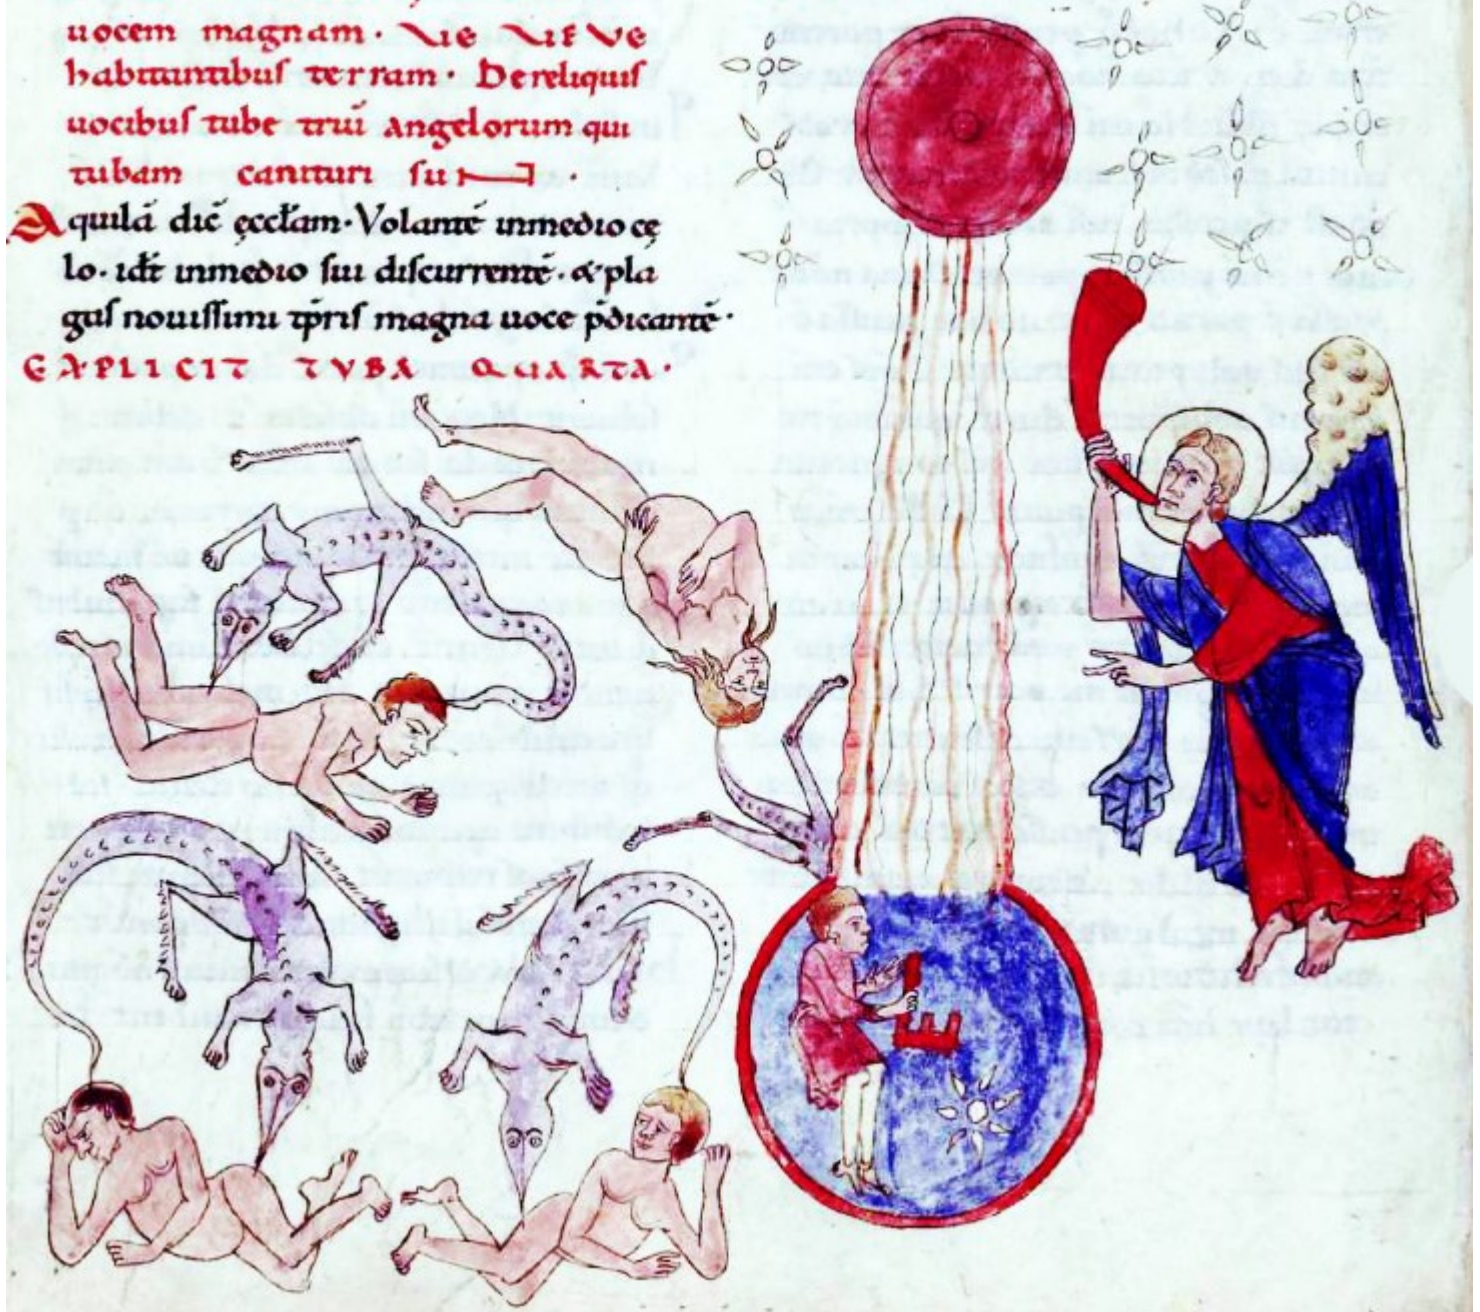 uocem magnam. Ue Ue Ue
habitantibus terram. De reliquis
uocibus tube triũ angelorum qui
tubam canituri sunt
Aquilã dic̃ ęcctam. Volantẽ inmedio cę
lo. idẽ inmedio sui discurrentẽ. & pla
gas nouissimi tp̃ris magna uoce p̃dicantẽ.
EXPLICIT TUBA QUARTA.